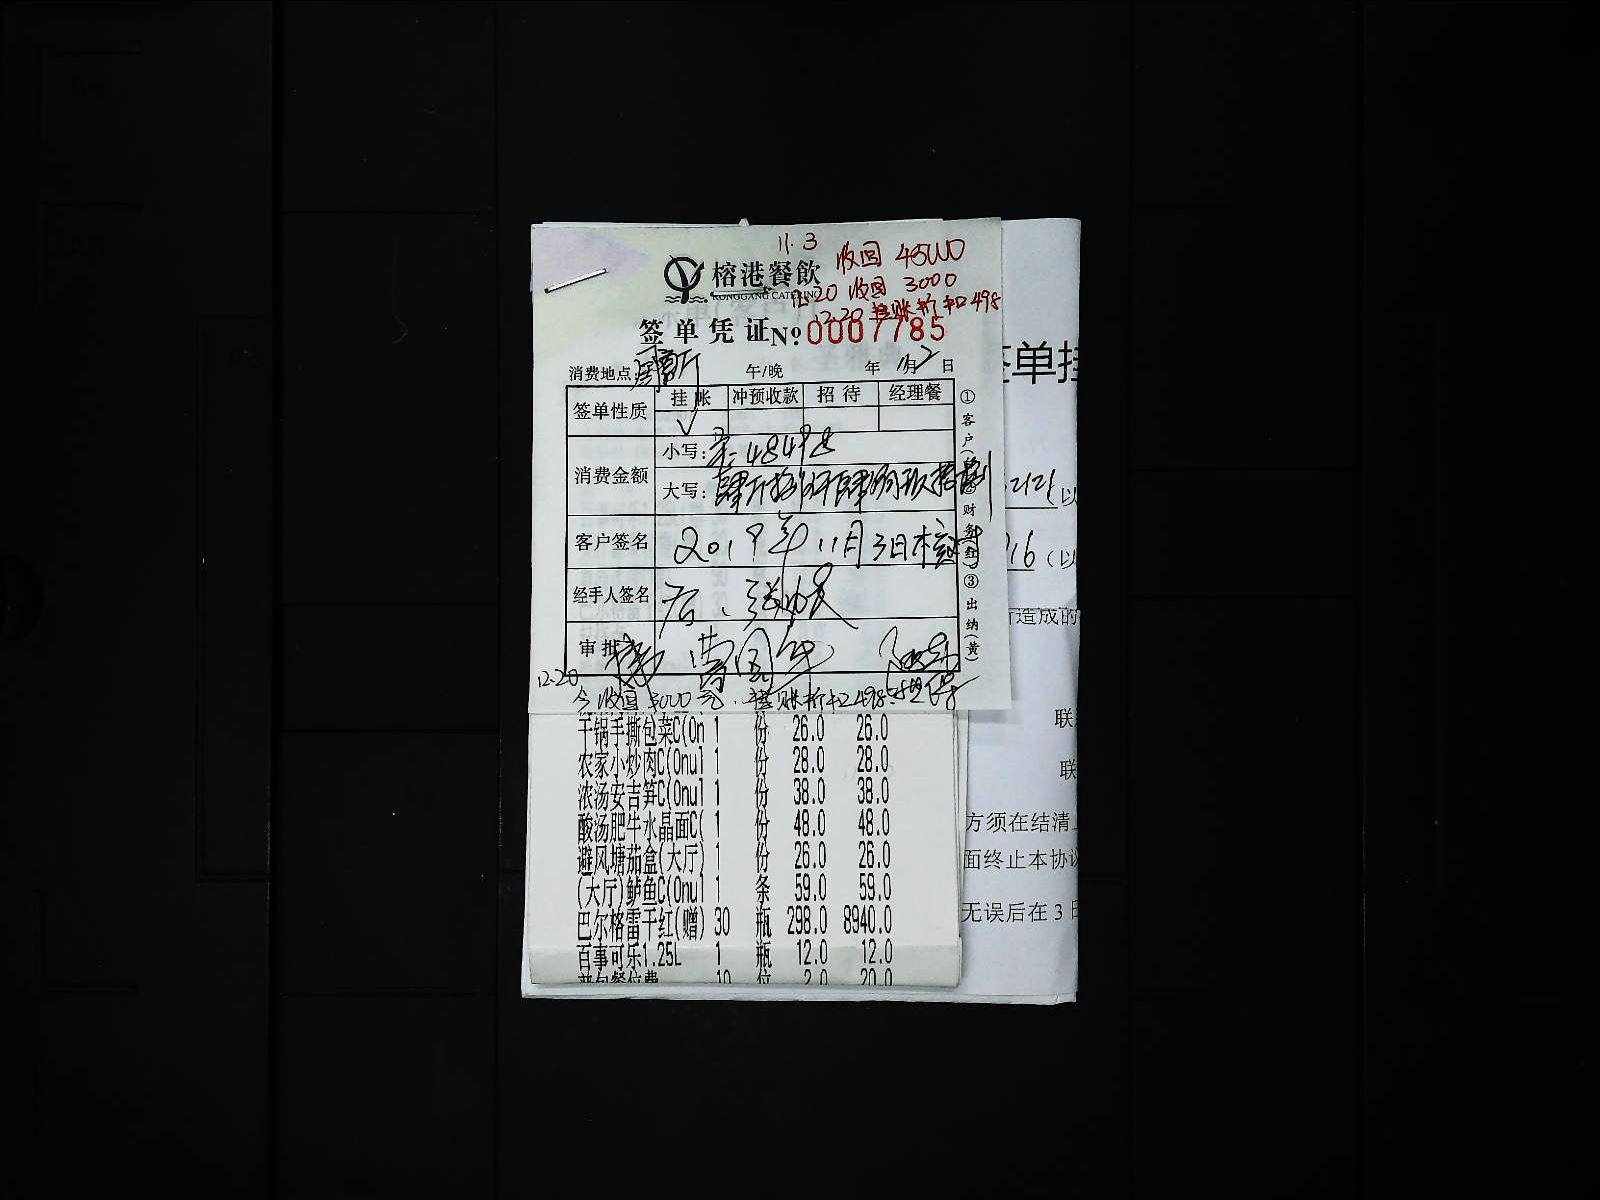 11.3 收回 45000
榕港餐飲
RONGGANG CATERING
12.20 收回 3000
12.20 挂账折扣498
签单凭证 №:0007785
消费地点: 午/晚 年 11月2日
签单性质 挂帐 冲预收款 招待 经理餐
√
消费金额 小写: 48498
大写: 肆万捌仟肆佰玖拾捌
客户签名 2019年11月3日核
经手人签名
审批
①客户( ) 财务(红) ③出纳(黄)
12-20
今收回3000元.挂账折扣498.
干锅手撕包菜C(On 1 份 26.0 26.0
农家小炒肉C(Onul 1 份 28.0 28.0
浓汤安吉笋C(Onul 1 份 38.0 38.0
酸汤肥牛水晶面C( 1 份 48.0 48.0
避风塘茄盒(大厅) 1 份 26.0 26.0
(大厅)鲈鱼C(Onul 1 条 59.0 59.0
巴尔格雷干红(赠) 30 瓶 298.0 8940.0
百事可乐1.25L 1 瓶 12.0 12.0
餐位费 10 位 2.0 20.0
签单挂
(以
16 (以
所造成的
联
联
方须在结清
面终止本协议
无误后在3日